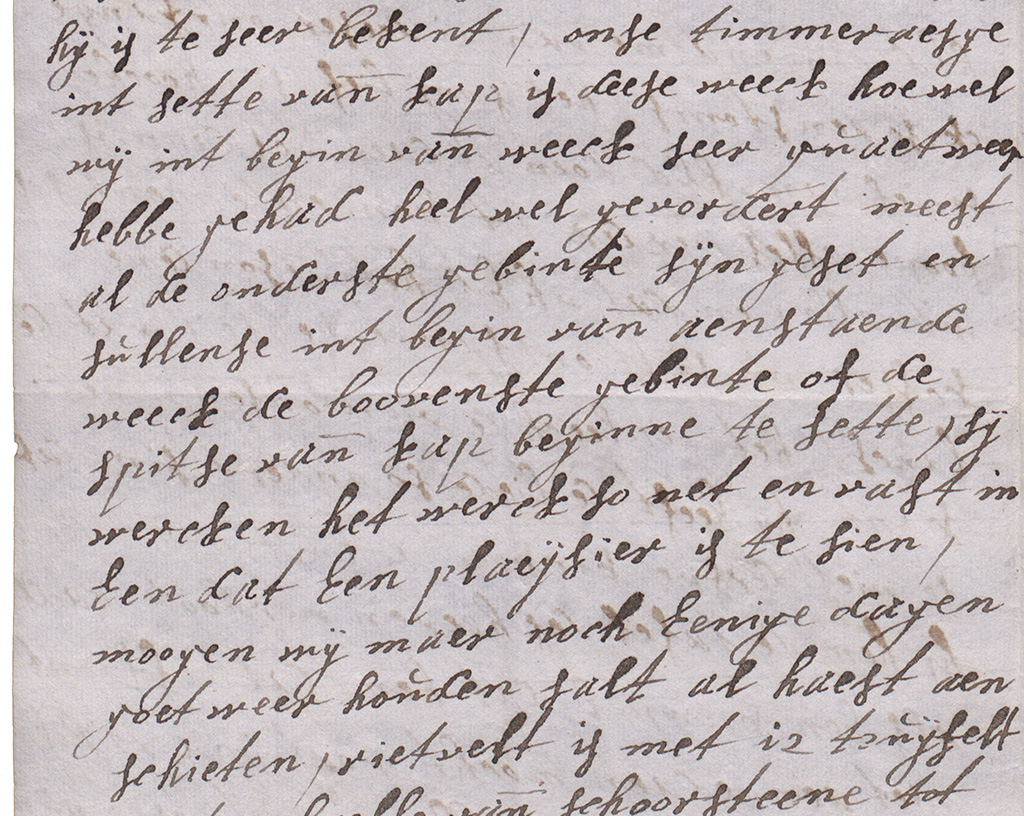 hÿ is te seer bekent, onse timmeraesge
int sette van̄ kap is deese weeck hoewel
wÿ int begin van̄ weeck seer quaet weer
hebbe gehad heel wel gevordert meest
al de onderste gebinte sÿn geset en
sullense int begin van̄ aenstaende
weeck de boovenste gebinte of de
spitse van̄ kap beginne te sette, sÿ
wercken het werck so net en vast in
Een dat Een plaeÿsier is te sien,
moogen wÿ maer noch Eenige dagen
goet weer houden salt al haest aen
schieten, rietvelt is met 12
van̄ schoorsteene tot